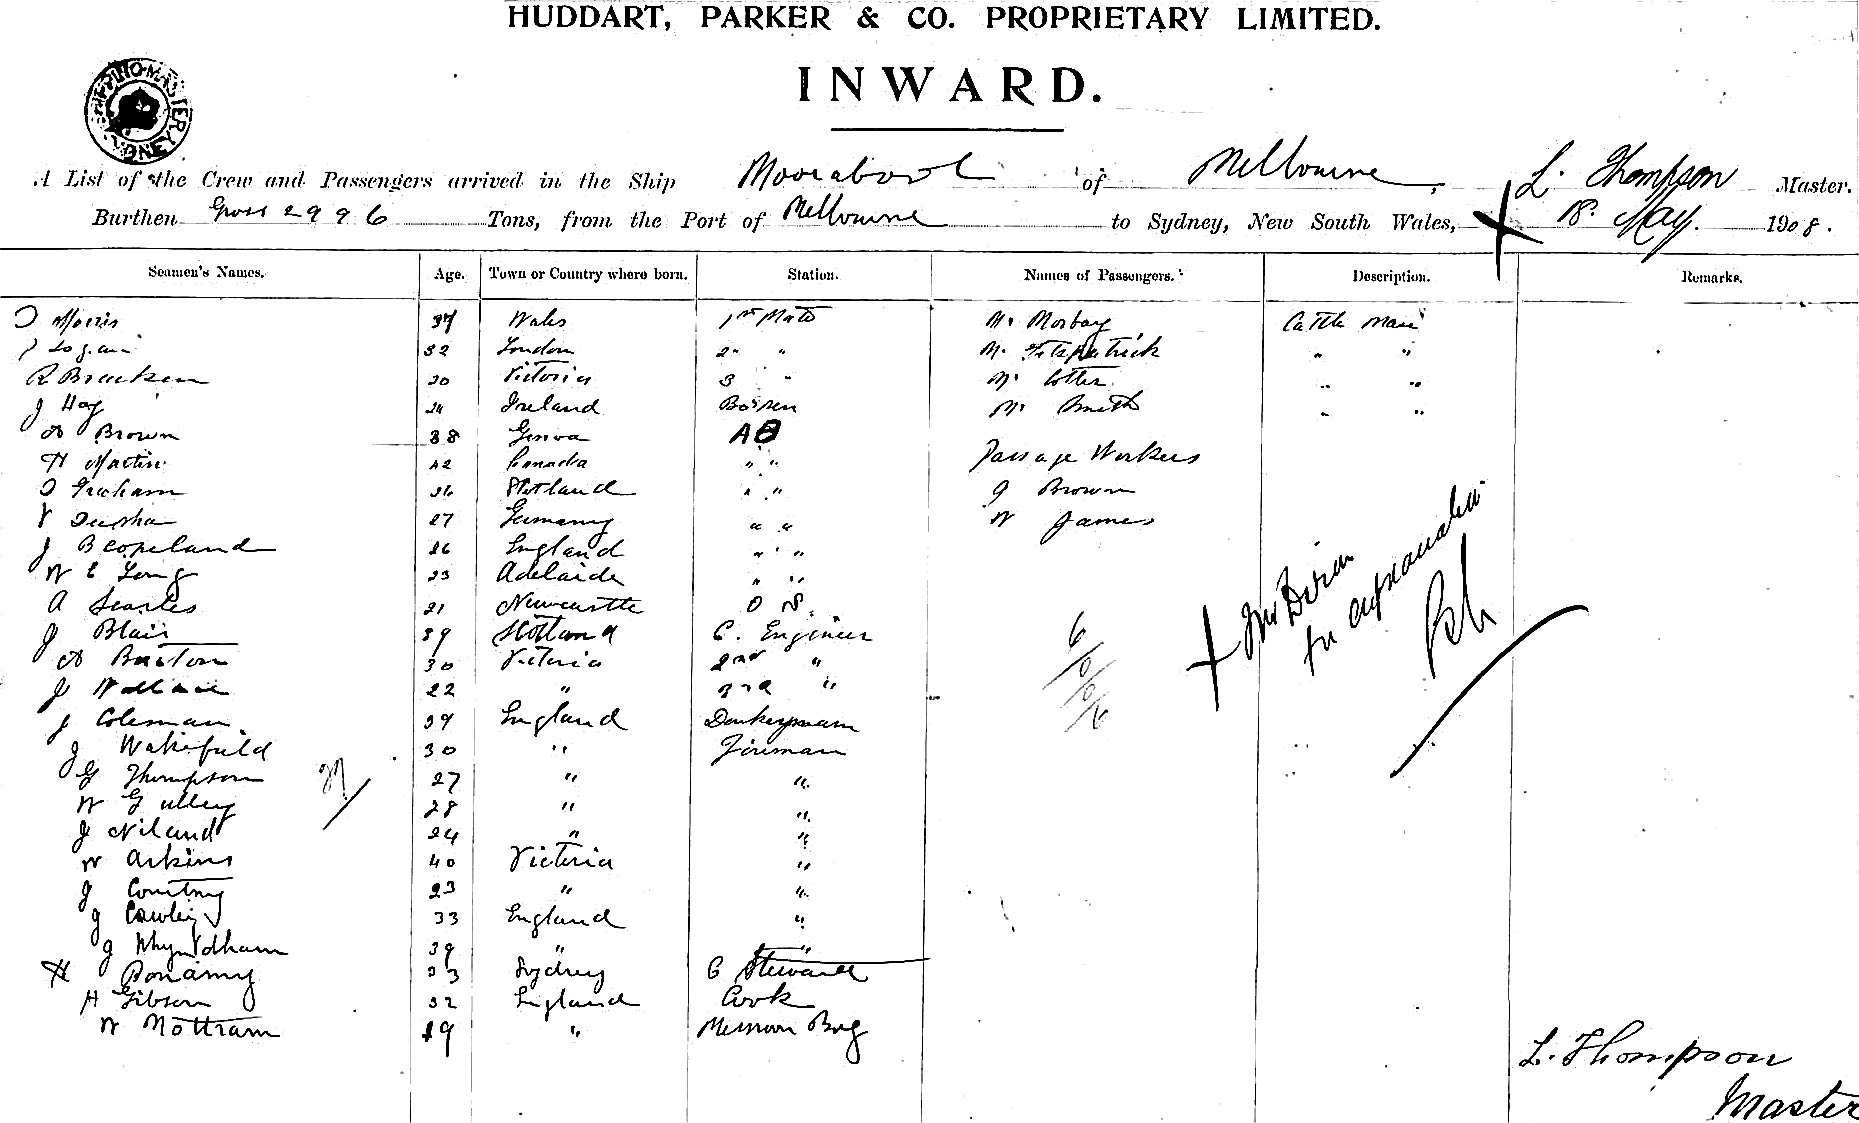 HUDDART, PARKER & CO. PROPRIETARY LIMITED.
INWARD.
SHIPPING MASTER SYDNEY
A List of the Crew and Passengers arrived in the Ship Moorabool of Melbourne, L. Thompson Master.
Burthen Gross 2996 Tons, from the Port of Melbourne to Sydney, New South Wales, 18. May. 1908.
Seamen's Names. Age. Town or Country where born. Station. Names of Passengers. Description. Remarks.
Morris 37 Wales 1st Mate Mr Cattle Man
32 London 2 " Mr Fitzpatrick " "
R Bracken 30 Victoria 3 " Mr Cotter " "
J Hay Ireland Mr Smith " "
A Brown 38 Genoa AB
H Martin 42 Canada " " Passage Workers
Graham Scotland " " J Brown
27 Germany " " W James
J B Copeland 26 England " "
W E Long 23 Adelaide " "
A Searles 21 Newcastle O S.
J Blair 39 Scotland C. Engineer
A Barton 30 Victoria 2nd "
J Wallace 22 " 3rd "
J Coleman 39 England Donkeyman
J Wakefield 30 " Fireman
G Thompson 27 " "
W Gulley 28 " "
J Niland 24 " "
W Askins 40 Victoria "
J Courtney 23 " "
J Cawley 33 England "
J Whyndham 39 " "
H Bonamy 33 Sydney C Steward
H Gibson 32 England Cook
W Mottram 19 " Messroom Boy
L. Thompson
Master